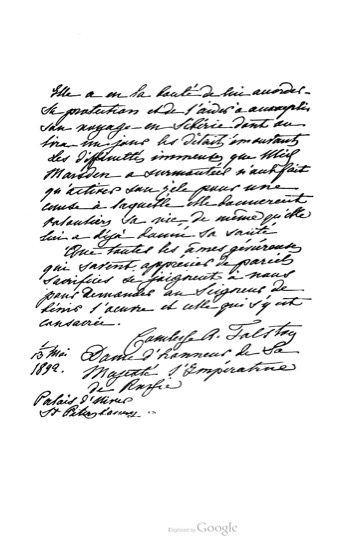 Elle a eu la bonté de lui accorder
Sa protection et de l'aider à accomplir
son voyage en Sibérie dont on
lira un jour les détails émouvants
Les difficultés immenses que Miss
Marsden a surmontées n'ont fait
qu'activer son zèle pour une
cause à laquelle elle donnerait
volontiers sa vie, de même qu'elle
lui a déjà donné sa santé
Que toutes les âmes généreuses
qui savent apprécier de pareils
sacrifices se joignent à nous
pour demander au Seigneur de
bénir l'œuvre et celle qui s'y est
consacrée.
Comtesse A. Tolstoy
Dame d'honneur de Sa
Majesté l'Impératrice
de Russie
1/13 Mai
1892.
Palais d'Hiver
St Petersbourg
Digitized by Google